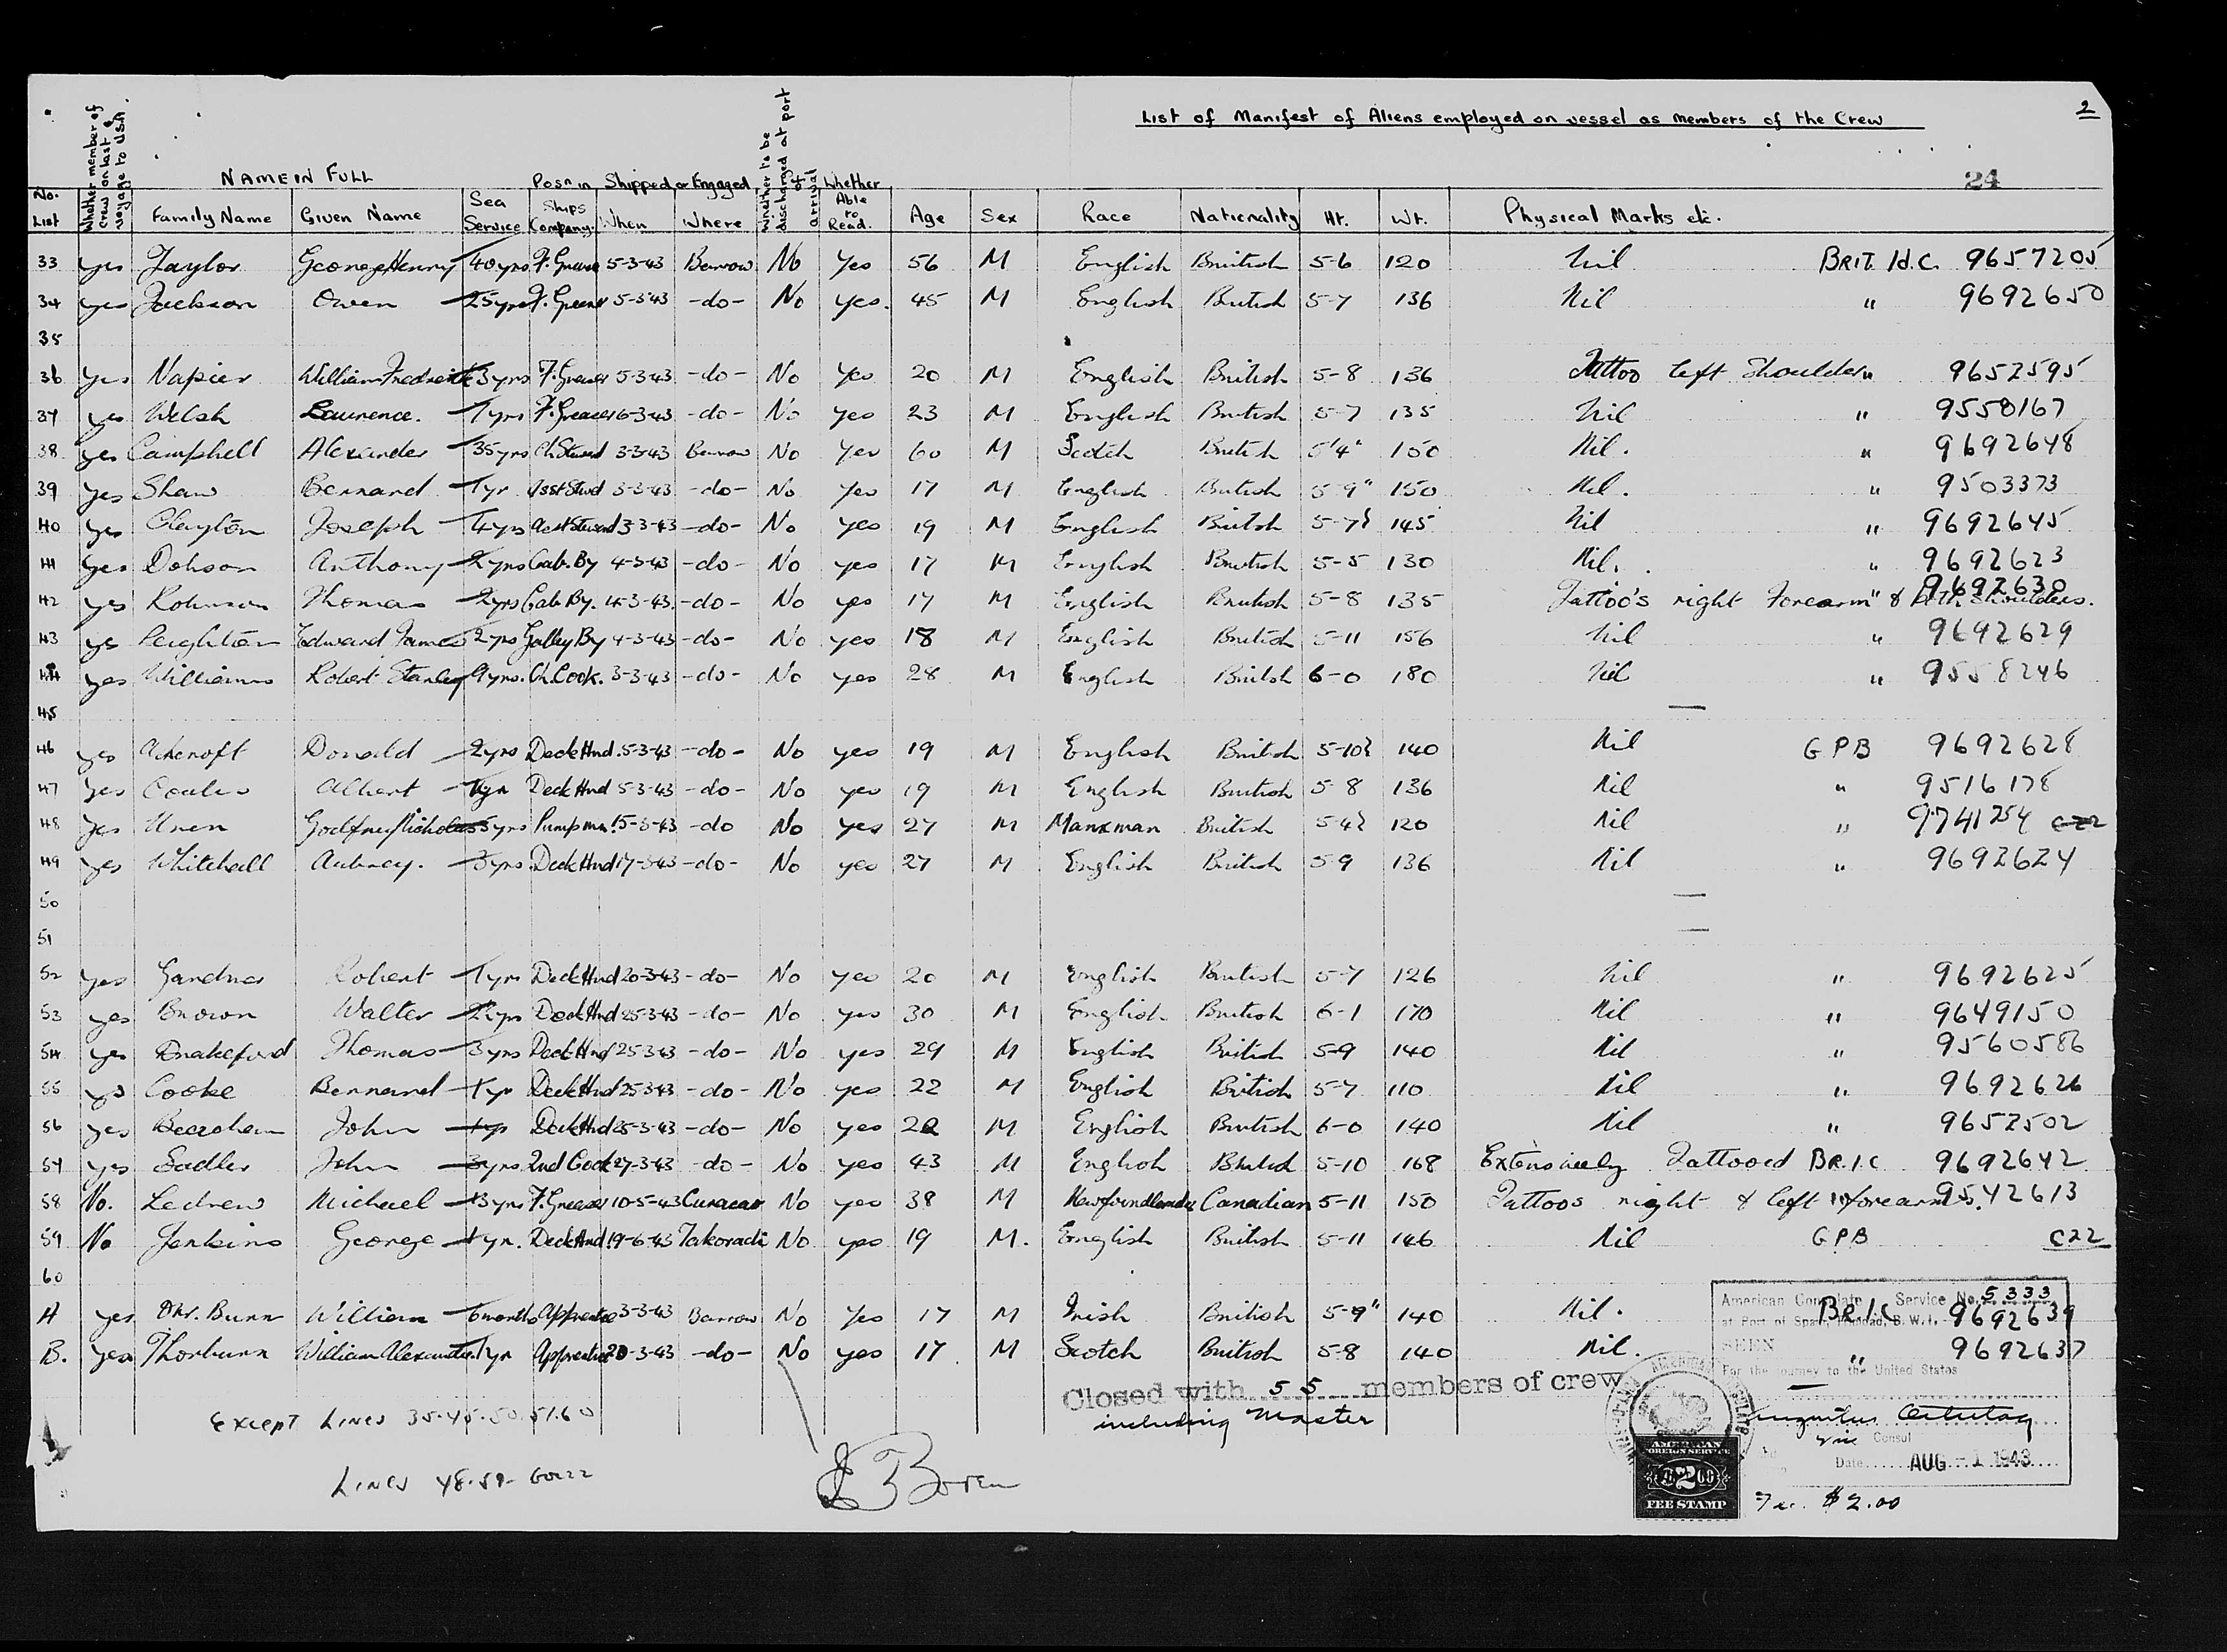 List of Manifest of Aliens employed on vessel as members of the Crew
2
24
No. List Whether member of crew on last voyage to USA. NAME IN FULL Family Name Given Name Sea Service Posn in Ships Company. Shipped or Engaged When Where Whether to be discharged at port of arrival Whether Able to Read. Age Sex Race Nationality Ht. Wt. Physical Marks etc.
33 yes Taylor George Henry 40 yrs F. Greaser 5-3-43 Barrow No Yes 56 M English British 5-6 120 Nil BRIT I.C. 9657205
34 yes Jackson Owen 25 yrs F. Greaser 5-3-43 -do- No yes. 45 M English British 5-7 136 Nil " 9692650
35
36 yes Napier William Frederick 3 yrs F. Greaser 5-3-43 -do- No Yes 20 M English British 5-8 136 Tattoo left Shoulder " 9652595
37 yes Welsh Laurence. 1 yrs F. Greaser 6-3-43 -do- No yes 23 M English British 5-7 135 Nil " 9558167
38 yes Campbell Alexander 35 yrs Ch Steward 3-3-43 Barrow No Yes 60 M Scotch British 5'4" 150 Nil. " 9692648
39 yes Shaw Bernard 1 yr Asst Stwd 3-3-43 -do- No Yes 17 M English British 5-9" 150 Nil. " 9503373
40 yes Clayton Joseph 4 yrs Asst Steward 3-3-43 -do- No yes 19 M English British 5-7½ 145 Nil " 9692645
41 yes Dobson Anthony 2 yrs Cab. By 4-3-43 -do- No yes 17 M English British 5-5 130 Nil. " 9692623
42 yes Robinson Thomas 2 yrs Cab By. 4-3-43 -do- No yes 17 M English British 5-8 135 Tattoo's right Forearm " & both shoulders. 9692630
43 yes Leighton Edward James 2 yrs Galley By 4-3-43 -do- No yes 18 M English British 5-11 156 Nil " 9692629
44 yes Williams Robert Stanley 9 yrs. Ch. Cook. 3-3-43 -do- No yes 28 M English British 6-0 180 Nil " 9558246
45
46 yes Ashcroft Donald 2 yrs Deck Hnd. 5-3-43 -do- No yes 19 M English British 5-10½ 140 Nil GPB 9692628
47 Yes Albert 1 yr Deck Hnd 5-3-43 -do- No yes 19 M English British 5-8 136 Nil " 9516178
48 Yes Unen Godfrey Nicholas 5 yrs Pumpmn. 15-3-43 -do No yes 27 M Manxman British 5-4½ 120 Nil " 9741254 C22
49 Yes Whitehall Aubrey. 3 yrs Deck Hnd 17-3-43 -do- No yes 27 M English British 5-9 136 Nil " 9692624
50
51
52 yes Gardner Robert 1 yrs Deck Hnd 20-3-43 -do- No yes 20 M English British 5-7 126 Nil " 9692625
53 yes Brown Walter 2 yrs Deck Hnd 25-3-43 -do- No yes 30 M English British 6-1 170 Nil " 9649150
54 yes Drakeford Thomas 3 yrs Deck Hnd 25-3-43 -do- No yes 29 M English British 5-9 140 Nil " 9560586
55 yes Cooke Bernard 1 yr Deck Hnd 25-3-43 -do- No yes 22 M English British 5-7 110 Nil " 9692626
56 yes John 1 yr Deck Hnd 25-3-43 -do- No yes 22 M English British 6-0 140 Nil " 9652502
57 yes Sadler John 3 yrs 2nd Cook 27-3-43 -do- No yes 43 M English British 5-10 168 Extensively Tattooed BR.I.C. 9692642
58 No. Ledrew Michael 3 yrs F. Greaser 10-5-43 Curacao No yes 38 M Newfoundlander Canadian 5-11 150 Tattoos right & left forearms. 9542613
59 No Jenkins George 1 yr. Deck Hnd. 19-6-43 Takoradi No yes 19 M. English British 5-11 146 Nil GPB C22
60
A yes Mr. Bunn William 6 months Apprentice 3-3-43 Barrow No Yes 17 M Irish British 5-9" 140 Nil. BR.I.C 9692639
B. yes Thorburn William Alexander. 1 yr Apprentice 20-3-43 -do- No yes 17 M Scotch British 5-8 140 Nil. " 9692637
American Consulate Service No. 5333
at Port of Spain, Trinidad, B.W.I.
SEEN
For the journey to the United States
Closed with 55 members of crew
including Master
Except Lines 35-45-50-51-60
Vice Consul
Date AUG -1 1943
Lines 48-59-
AMERICAN FOREIGN SERVICE
$2.00
FEE STAMP
Fee $2.00